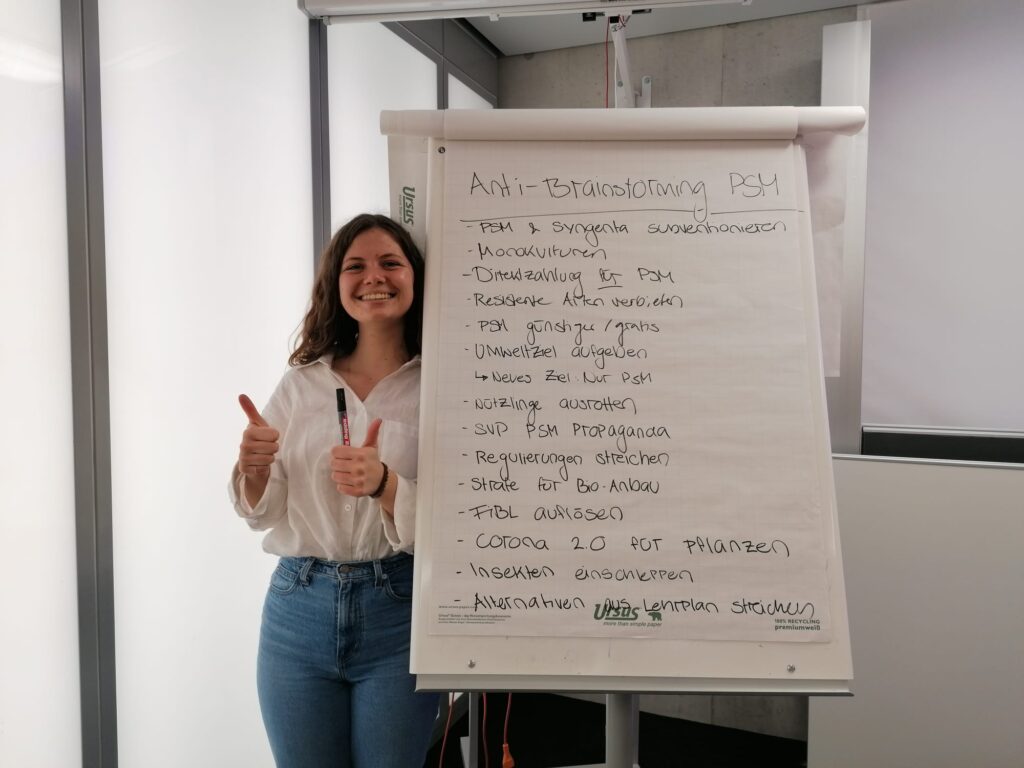 Anti-Brainstorming PSM
- PSM & Syngenta subventionieren
- Monokulturen
- Direktzahlung für PSM
- Resistente Arten verbieten
- PSM günstiger/gratis
- Umweltziel aufgeben
↳ Neues Ziel: Nur PSM
- Nützlinge ausrotten
- SVP PSM Propaganda
- Regulierungen streichen
- Strafe für Bio-Anbau
- FiBL auflösen
- Corona 2.0 für Pflanzen
- Insekten einschleppen
- Alternativen aus Lehrplan streichen
Ursus
more than simple paper
100% RECYCLING
premiumweiß
Ursus
edding